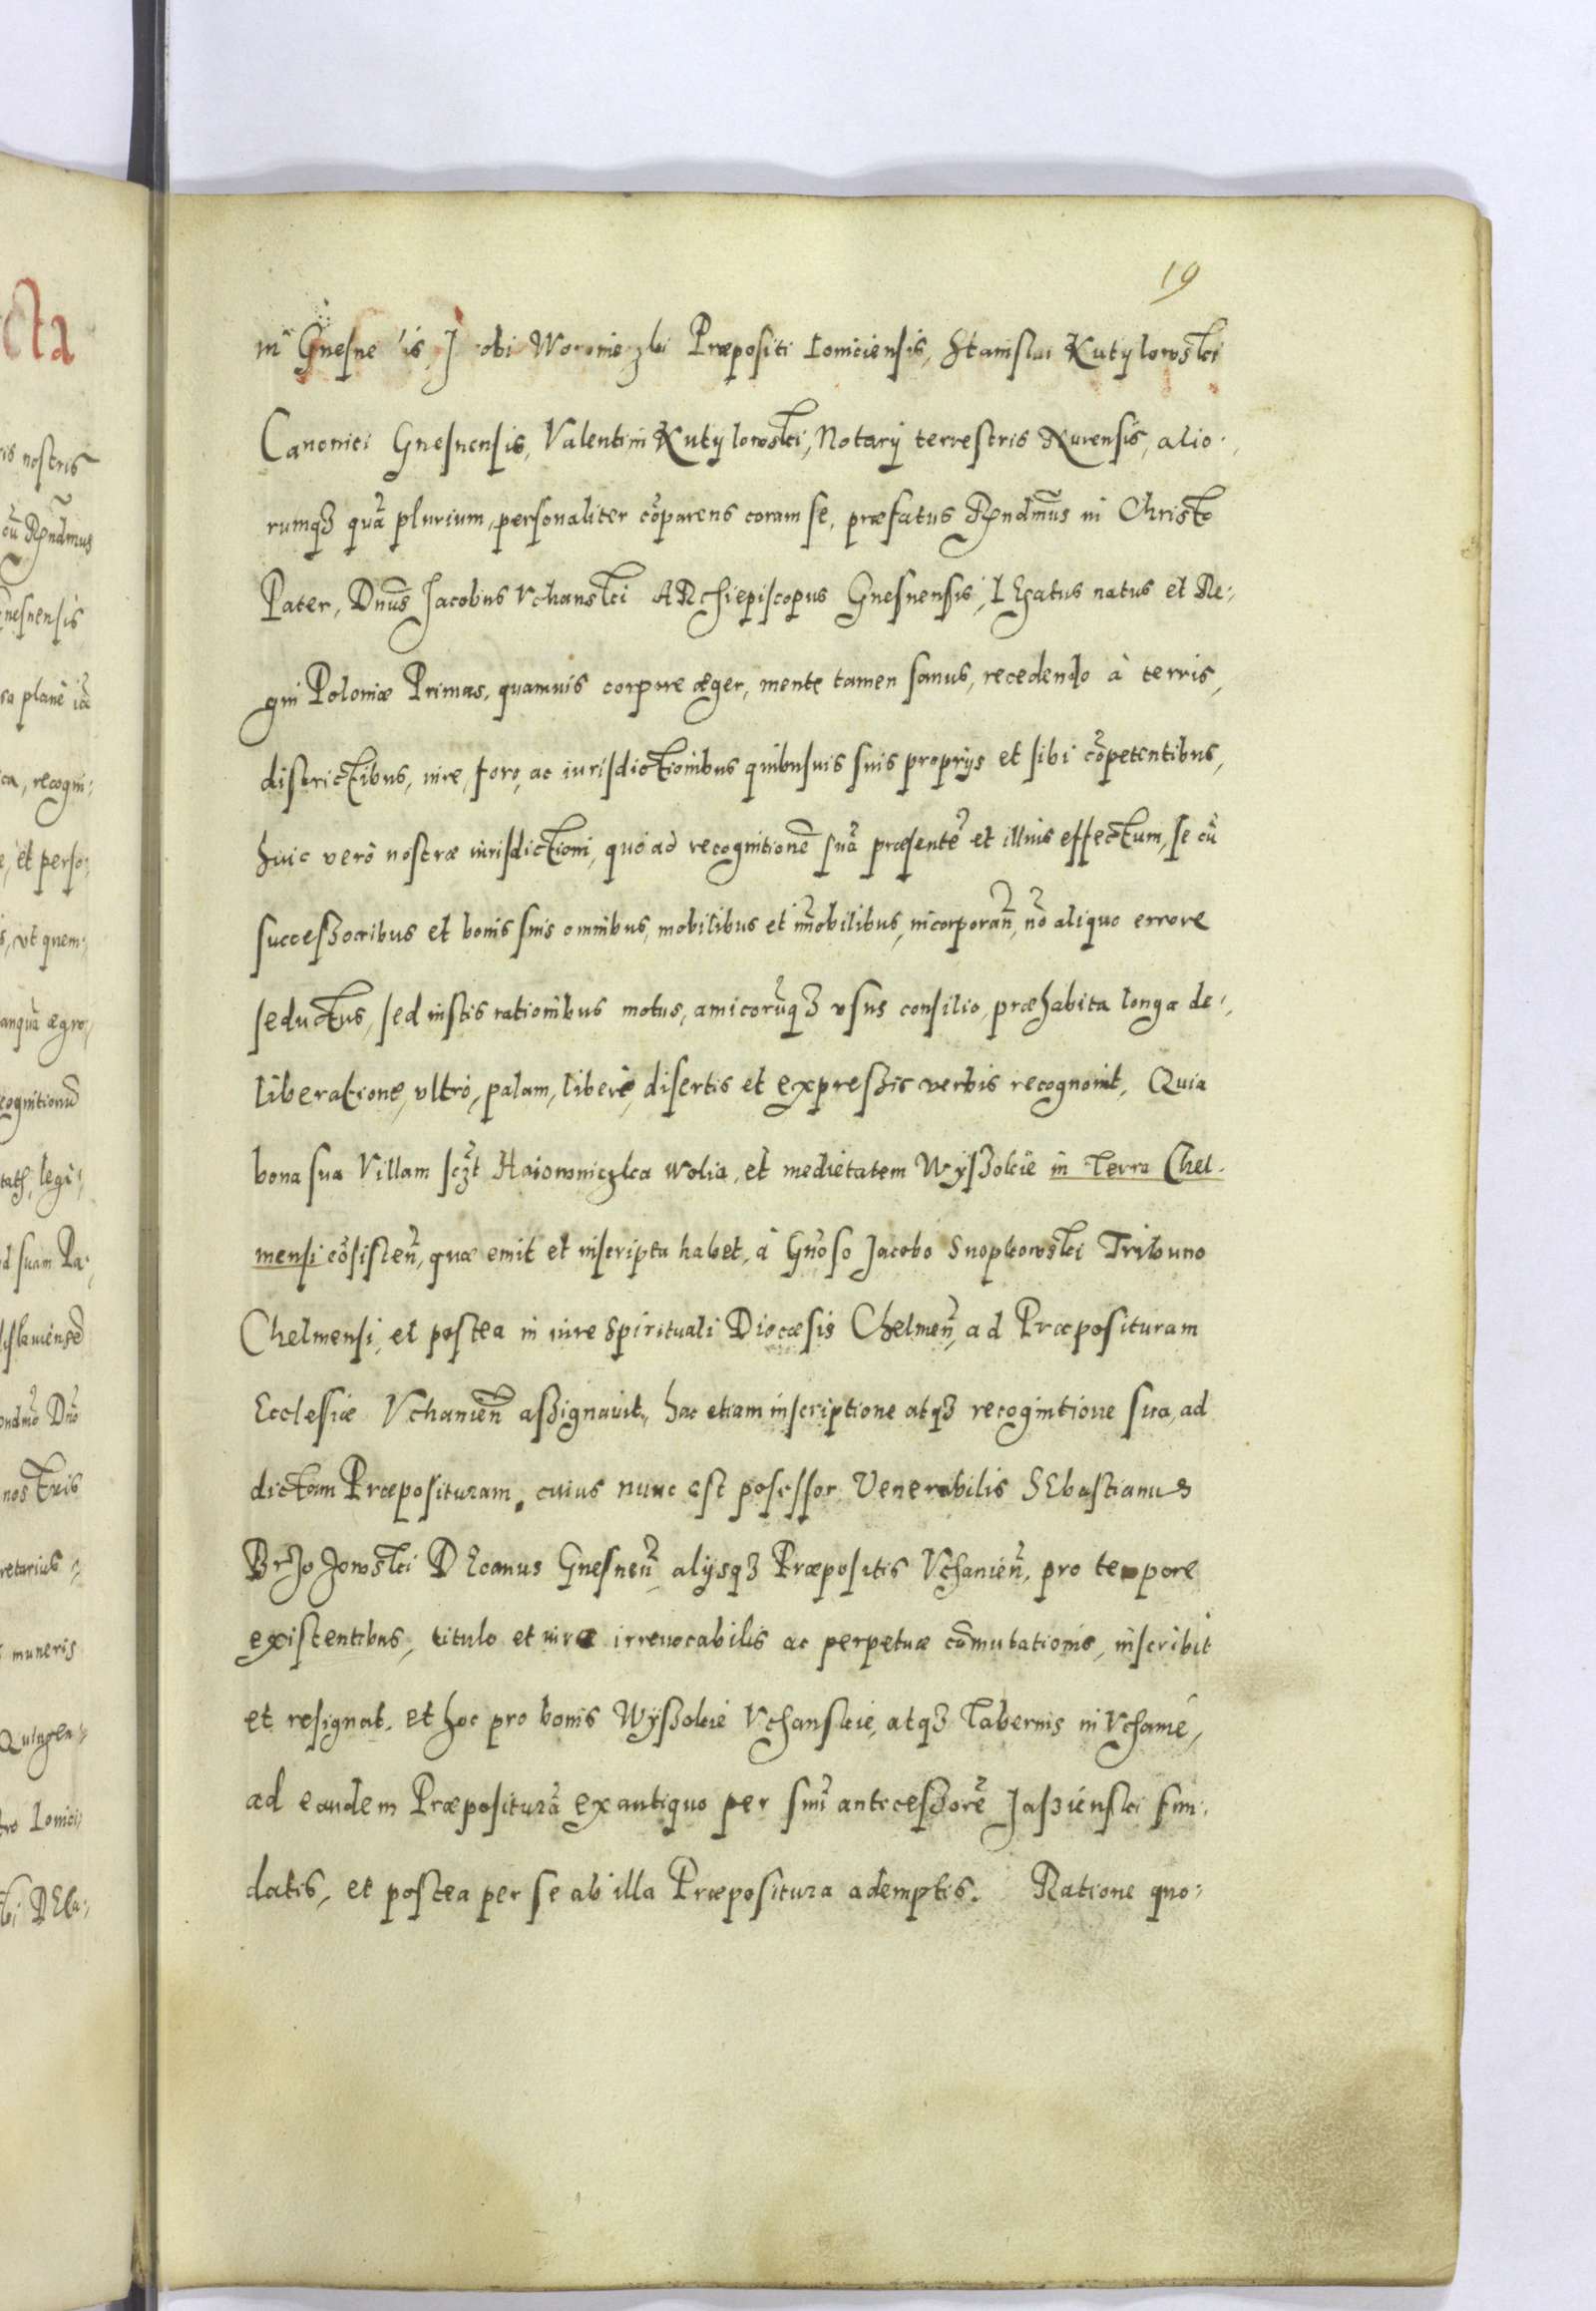 19
ni Gnesne is, J cobi Woroniezki Præpositi Loniciensis, Stanislai Kutylowski
Canonici Gnesnensis, Valentini Kutylowski, Notarij terrestris Nurensis, alio:
rumqȝ quã plurium, personaliter cõparens coram se, præfatus Rndmus in Christo
Pater, Dnus Jacobus Vchanski ARchiepiscopus Gnesnensis, LEgatus natus et Re:
gni Poloniæ Primas, quamuis corpore æger, mente tamen sanus, recedendo à terris,
districtibus, iure, foro, ac iurisdictionibus quibusuis suis proprijs et sibi cõpetentibus,
huic verò nostræ iurisdictioni, quo ad recognitionẽ suã præsentẽ et illius effectum, se cũ
successoribus et bonis suis omnibus, mobilibus et im̃obilibus, incorporañ, nõ aliquo errore
seductus, sed iustis rationibus motus, amicorũqȝ vsus consilio, præhabita longa de:
liberatione, vltrò, palam, liberè, disertis et expressis verbis recognouit, Quia
bona sua Villam sczt Haiowniczka wolia, et medietatem Wyssokie in Terra Chel:
mensi cõsisteñ, quæ emit et inscripta habet, à Gnoso Jacobo Snopkowski Tribuno
Chelmensi, et postea in iure Spirituali Diocæsis Chelmeñ, ad Præposituram
Ecclesiæ Vchanieñ assignauit, hac etiam inscriptione atqȝ recognitione sua, ad
dictam Præposituram, cuius nunc est posessor Venerabilis SEbastianus
Brzozowski DEcanus Gnesneñ, alijsqȝ Præpositis Vchanieñ, pro tempore
existentibus, titulo et iure irreuocabilis ac perpetuæ cõmutationis, inscribit
et resignat. et hoc pro bonis Wyssokie Vchanskie, atqȝ Tabernis in Vchanie,
ad eandem Præpositurã ex antiquo per suũ antecessorẽ Jasienski fun:
datis, et postea per se ab illa Præpositura ademptis. Ratione quo: